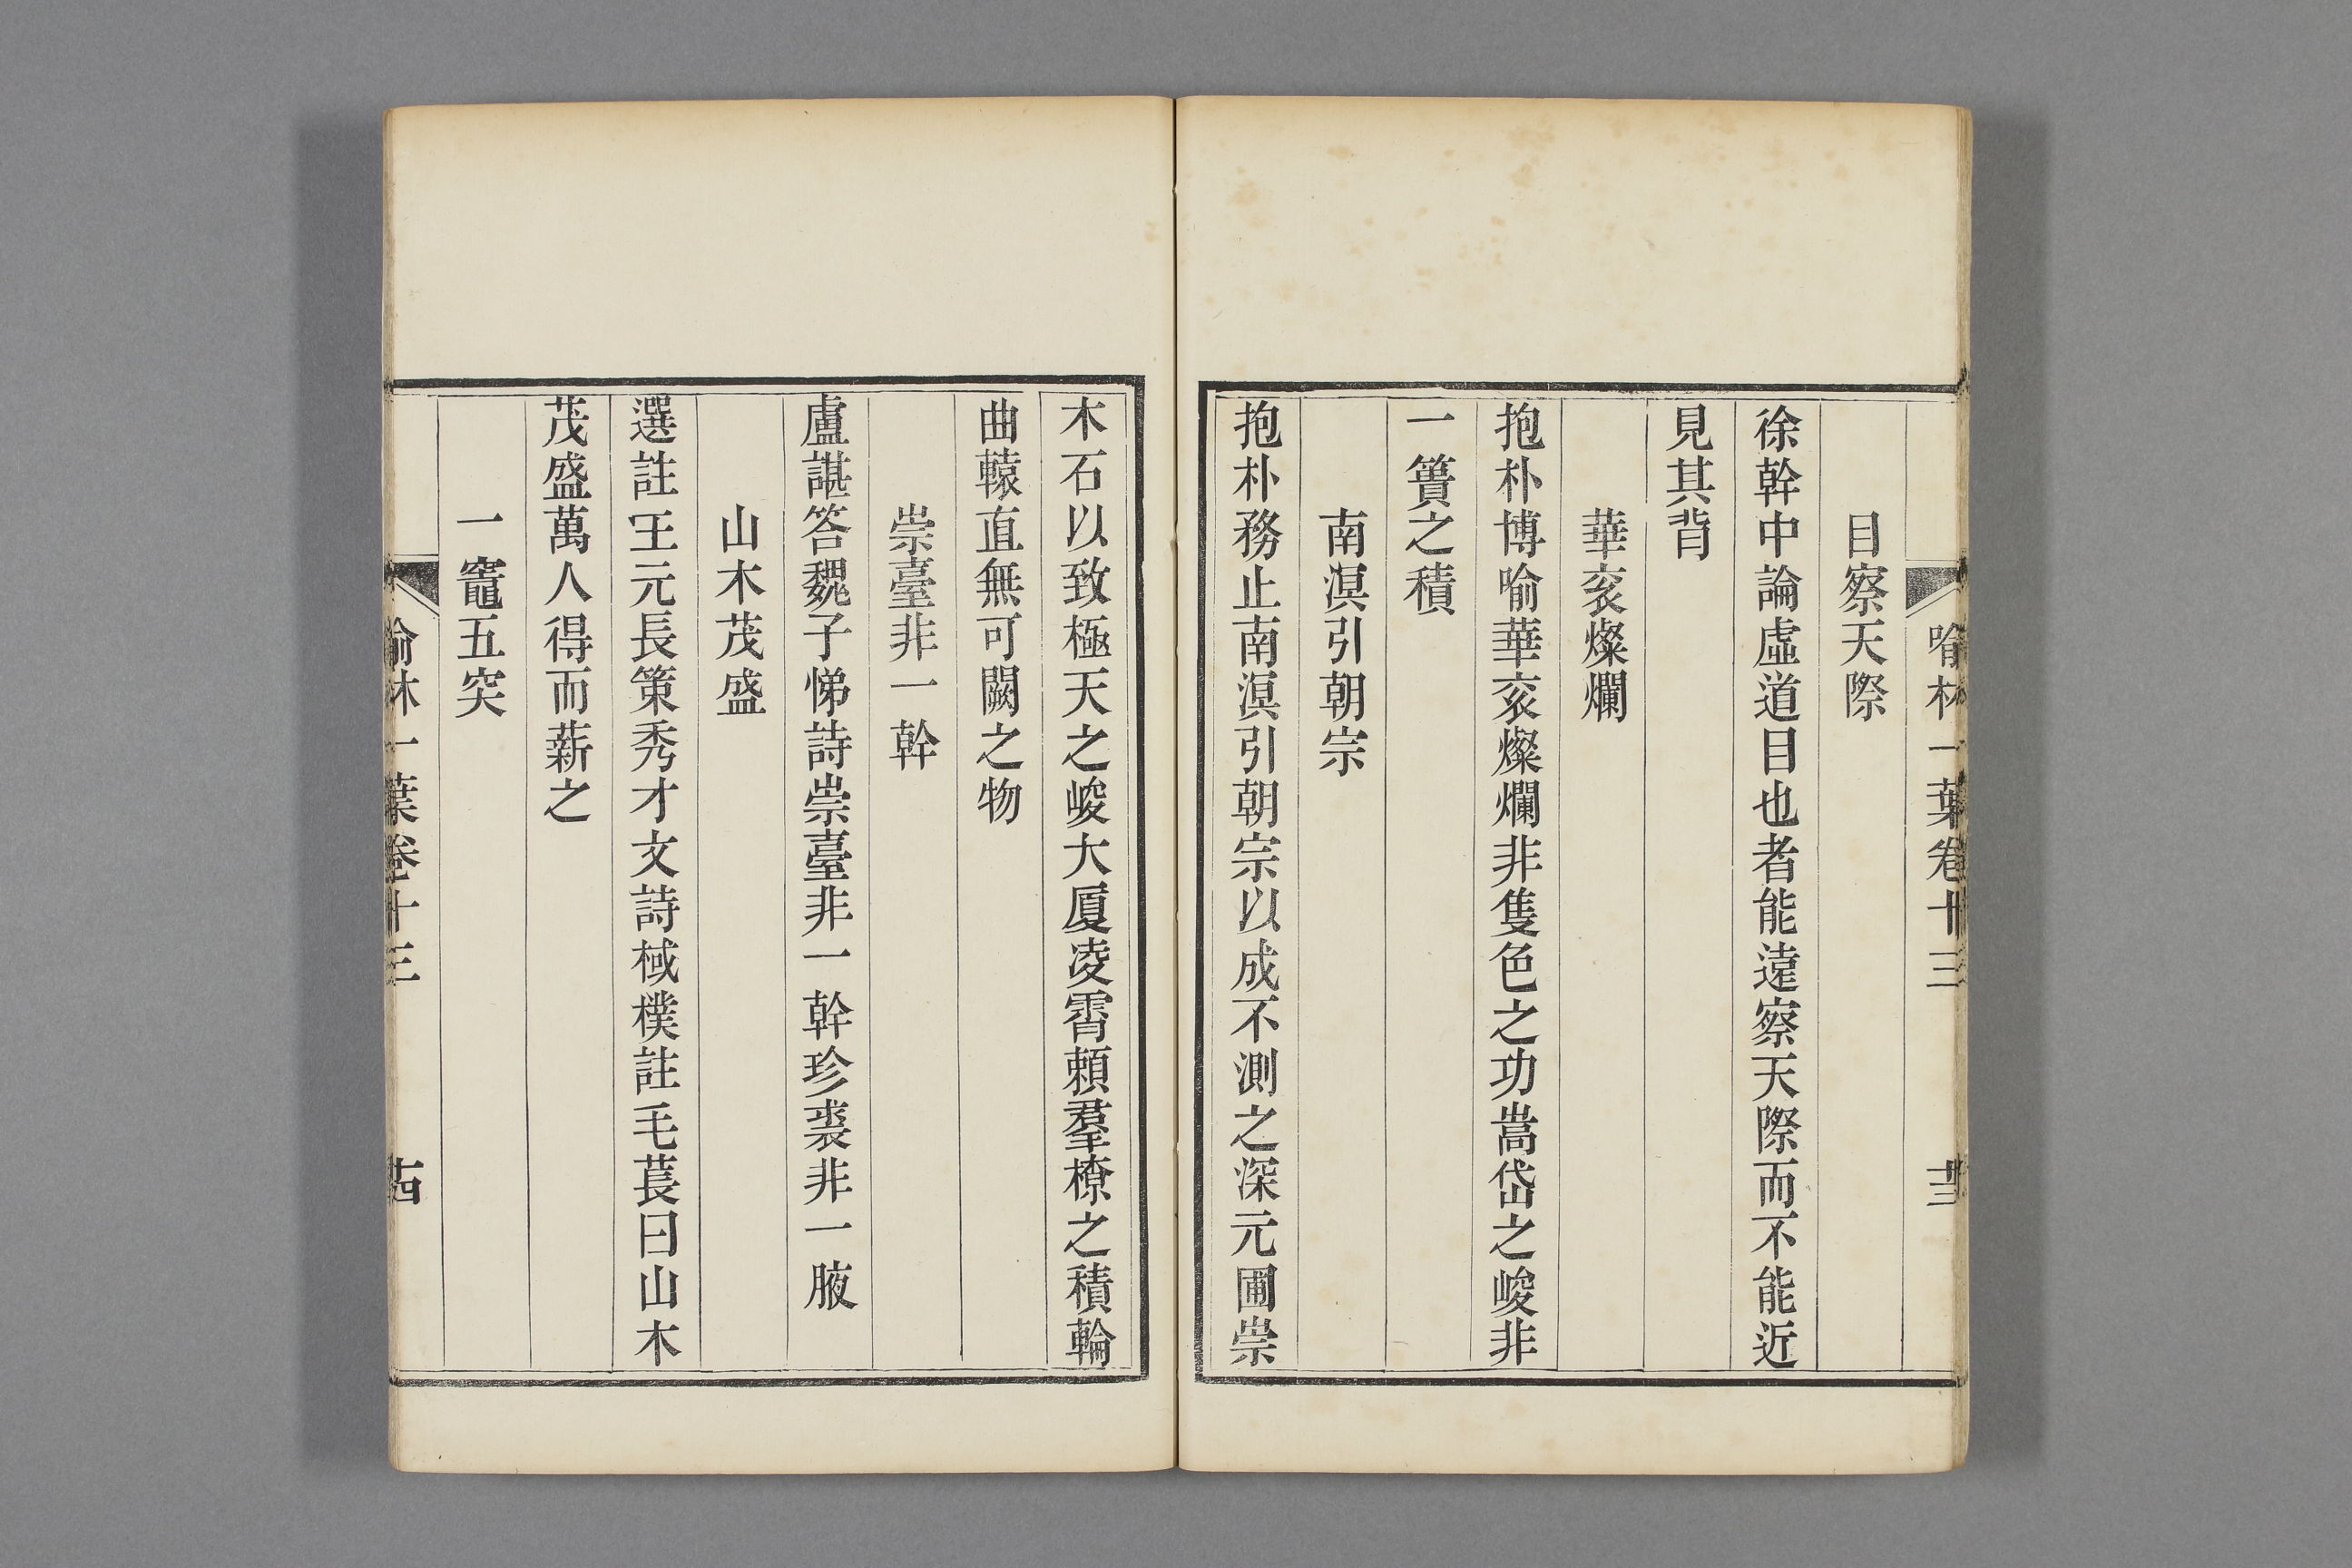 喻林一葉卷十三
目察天際
徐幹中論虛道目也者能遠察天際而不能近
見其背
華衮燦爛
抱朴博喻華衮燦爛非隻色之功嵩岱之峻非
一簣之積
南溟引朝宗
抱朴務止南溟引朝宗以成不測之深元圃崇
木石以致極天之峻大厦凌霄賴羣橑之積輪
曲轅直無可闕之物
崇臺非一幹
盧諶答魏子悌詩崇臺非一幹珍裘非一腋
山木茂盛
選註王元長策秀才文詩棫樸註毛萇曰山木
茂盛萬人得而薪之
一竈五突
喻林一葉卷十三